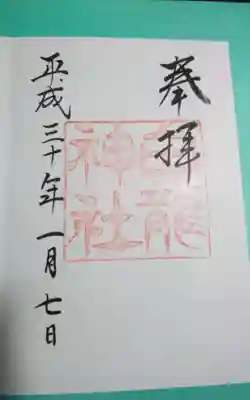 奉拝
白龍神社
平成三十年一月七日